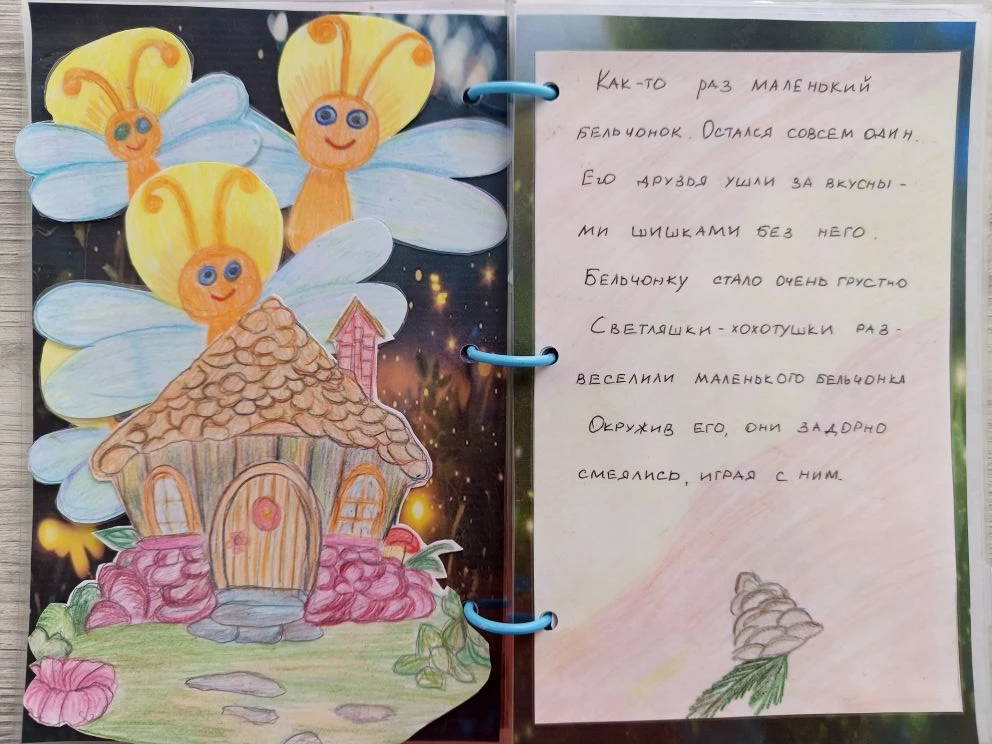 Как-то раз маленький
бельчонок. Остался совсем один.
Его друзья ушли за вкусны-
ми шишками без него.
Бельчонку стало очень грустно
Светляшки-хохотушки раз-
веселили маленького бельчонка
Окружив его, они задорно
смеялись, играя с ним.